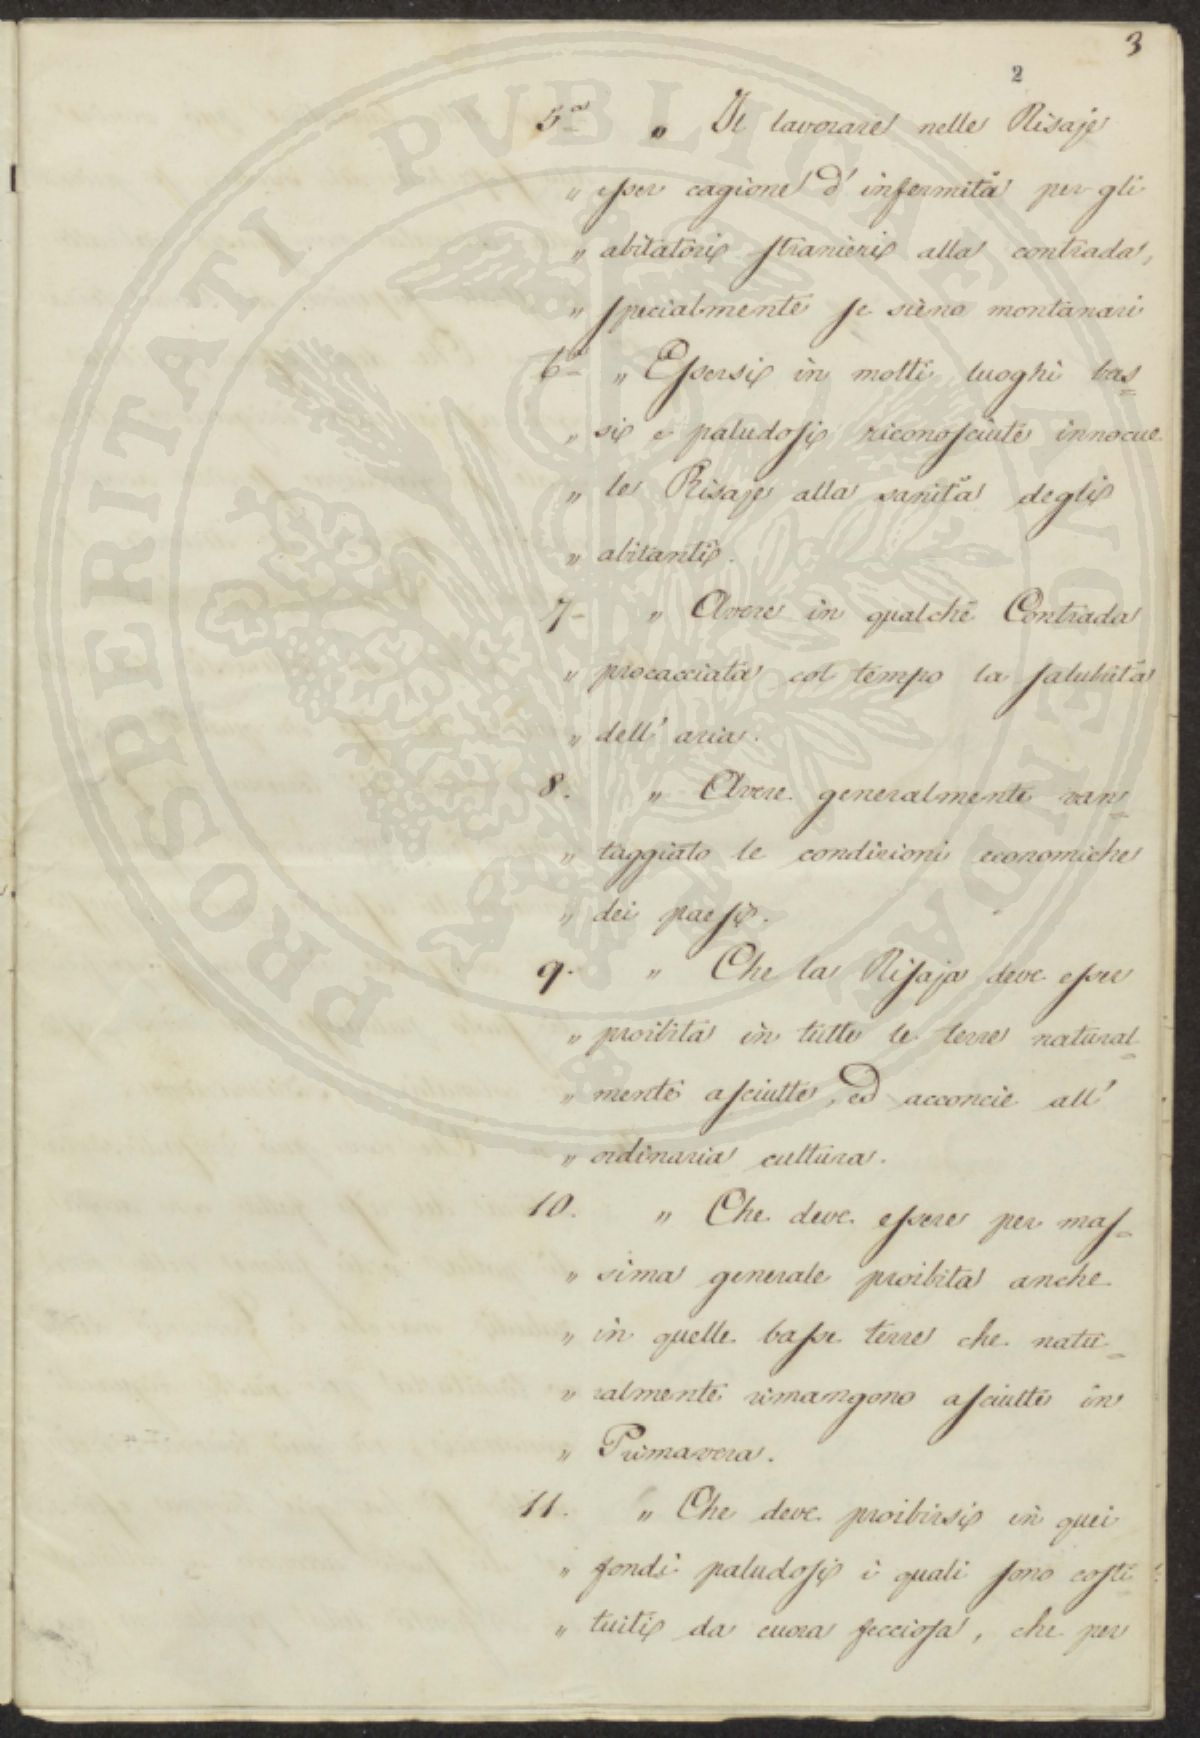 3
2
5ª " Il lavorare nelle Risaje
" esser cagione d' infermità per gli
" abitatori stranieri alla contrada,
" specialmente se sieno montanari
6ª " Essersi in molti luoghi bas=
" si e paludosi riconosciute innocue
" le Risaje alla sanità degli
" abitanti.
7- " Avere in qualche Contrada
" procacciata col tempo la salubrità
" dell' aria.
8. " Avere generalmente van=
" taggiato le condizioni economiche
" dei paesi.
9. " Che la Risaja deve esser
" proibita in tutte le terre natural=
" mente asciutte, ed acconcie all'
" ordinaria cultura.
10. " Che deve essere per mas=
" sima generale proibita anche
" in quelle basse terre che natu=
" ralmente rimangono asciutte in
" Primavera.
11. " Che deve proibirsi in quei
" fondi paludosi i quali sono costi=
" tuiti da cuora fecciosa, che per
PROSPERITATI PUBLICAE AUGENDAE